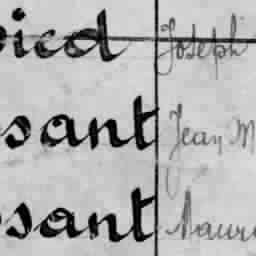 icd Joseph
sant Jean M
sant Mauri